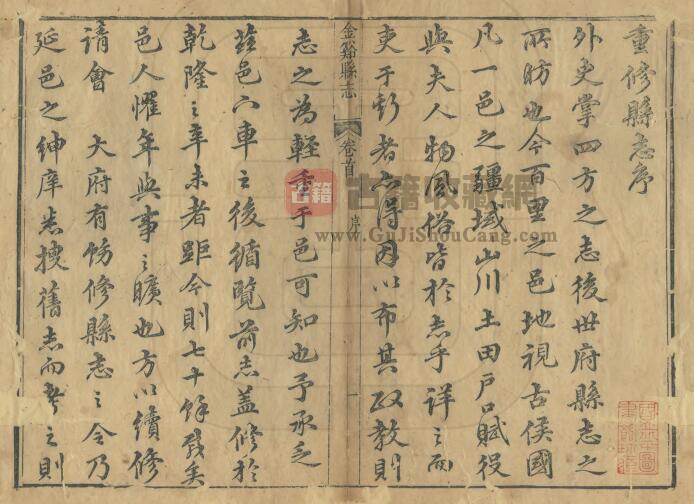 重修縣志序
外史掌四方之志後世府縣志之
所昉也今百里之邑地視古侯國
凡一邑之疆域山川土田戶口賦役
與夫人物風俗皆於志乎詳之而
吏于斯者亦得因以布其政教則
金谿縣志
卷首
序
一
志之為輕重于邑可知也予承乏
茲邑下車之後循覽前志蓋修於
乾隆之辛未者距今則七十餘載矣
邑人懼年與事之曠也方以續修
請會 大府有飭修縣志之令乃
延邑之紳庠悉搜舊志而考之則
古籍收藏網
www.GuJiShouCang.com